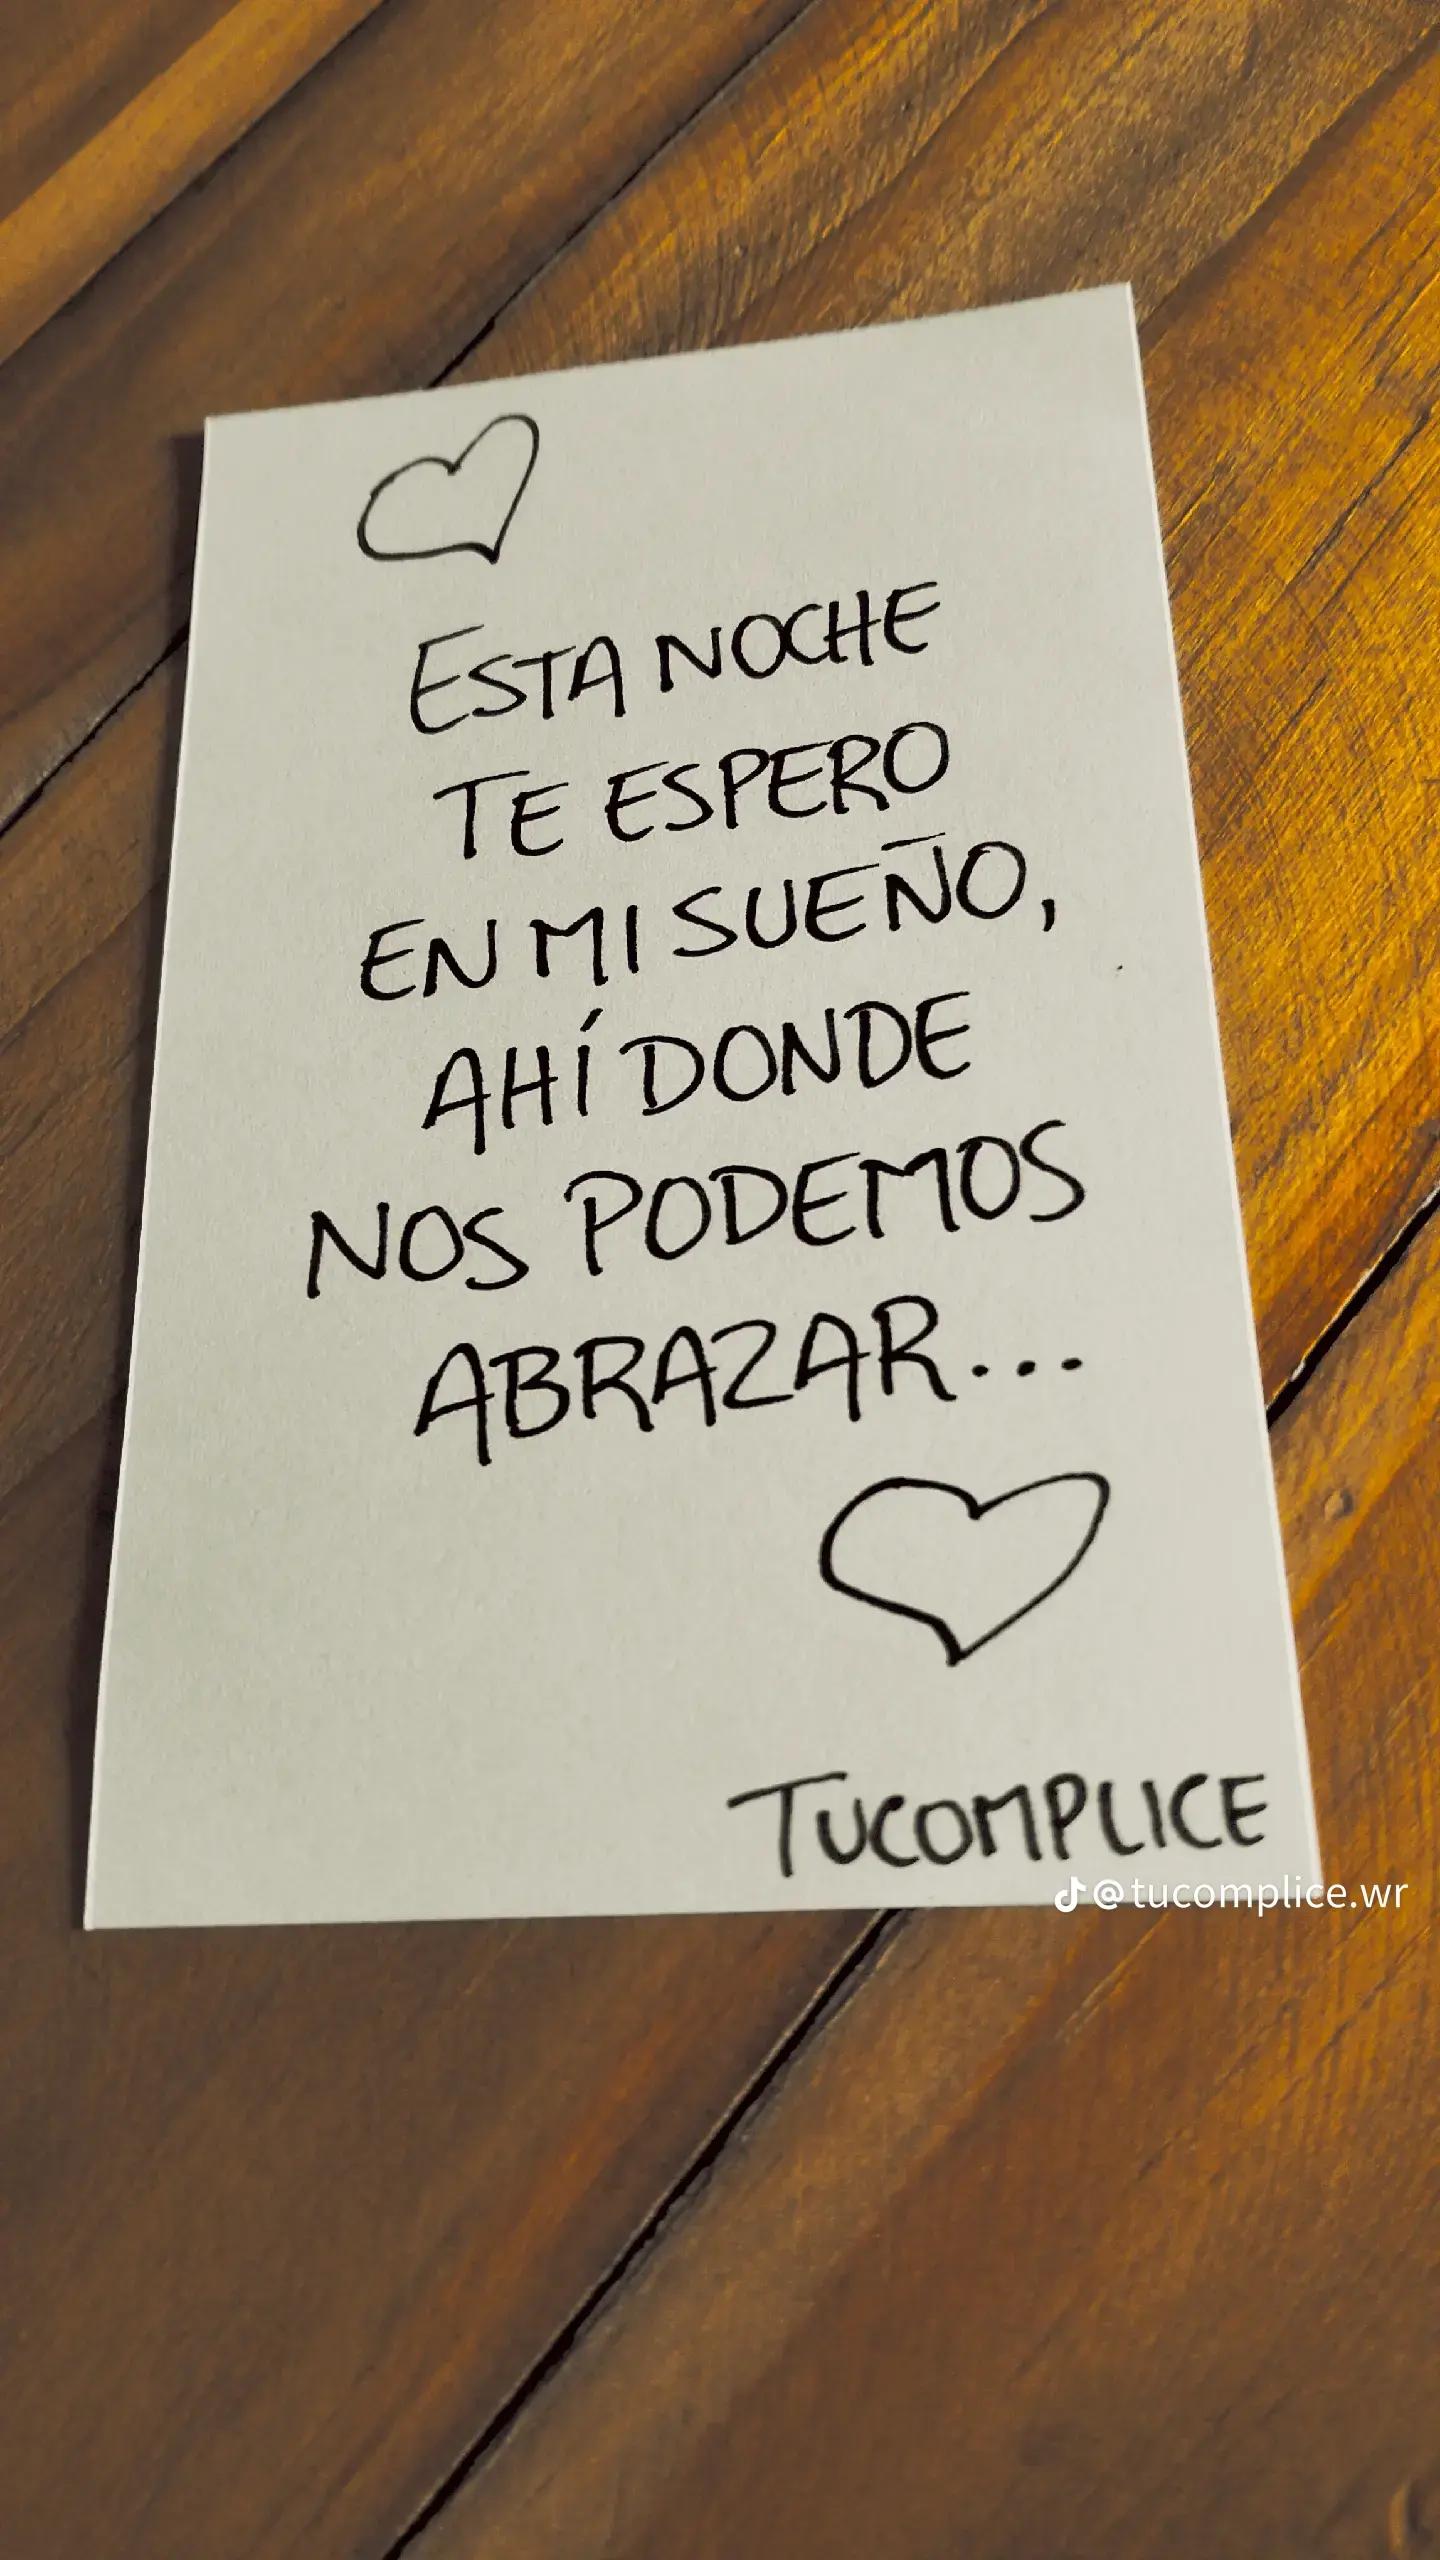 ESTA NOCHE
TE ESPERO
EN MI SUEÑO,
AHÍ DONDE
NOS PODEMOS
ABRAZAR...
TUCOMPLICE
@tucomplice.wr